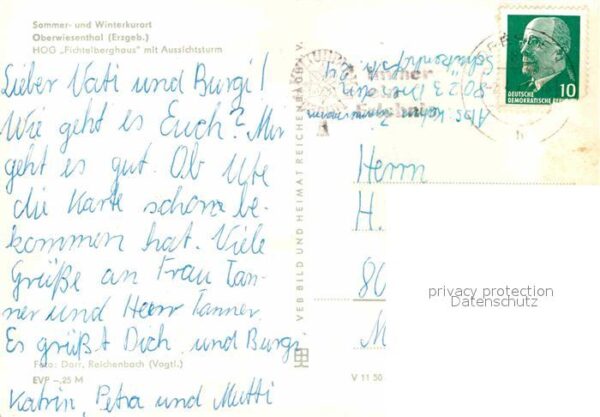 Sommer- und Winterkurort
Oberwiesenthal (Erzgeb.)
HOG „Fichtelberghaus" mit Aussichtsturm
Lieber Vati und Burgi!
Wie geht es Euch? Mir
geht es gut. Ob Ute
die Karte schon be-
kommen hat. Viele
Grüße an Frau Tan-
ner und Herr Tanner.
Es grüßt Dich und Burgi
Foto: Darr, Reichenbach (Vogtl.)
EVP –,25 M
Katrin, Petra und Mutti
VEB BILD UND HEIMAT REICHENBACH I. V.
V 11 50
Abs.
8023 Dresden
DEUTSCHE
DEMOKRATISCHE
10
Herrn
H.
80
M
privacy protection
Datenschutz